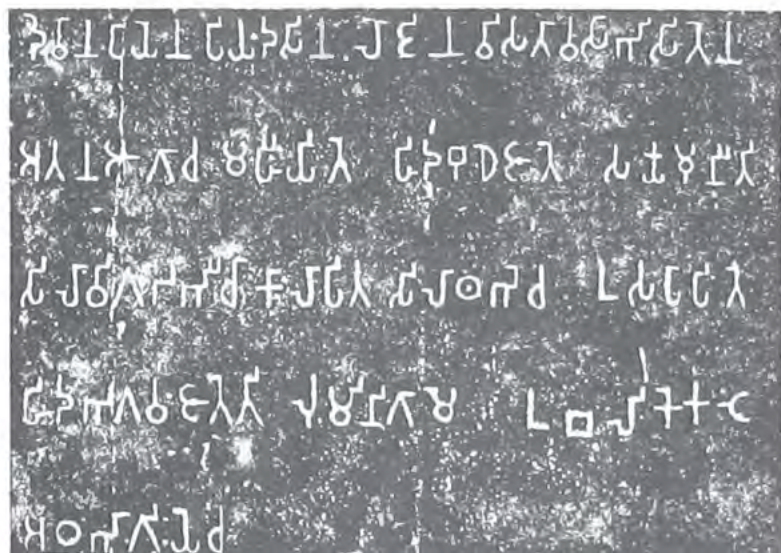 𑀤𑁂𑀯𑀸𑀦𑀧𑀺𑀬𑁂𑀦𑀧𑀺𑀬𑀤𑀲𑀺𑀦 𑀮𑀸𑀚𑀺𑀦 𑀯𑀻𑀲𑀢𑀺𑀯𑀲𑀸𑀪𑀺𑀲𑀺𑀢𑁂𑀦
𑀅𑀢𑀦𑀆𑀕𑀸𑀘 𑀫𑀳𑀻𑀬𑀺𑀢𑁂 𑀳𑀺𑀤𑀩𑀼𑀥𑁂𑀚𑀸𑀢𑁂 𑀲𑀓𑁆𑀬𑀫𑀼𑀦𑀻𑀢𑀺
𑀲𑀺𑀮𑀸𑀯𑀺𑀕𑀟𑀪𑀻𑀘𑀸𑀓𑀸𑀮𑀸𑀧𑀺𑀢 𑀲𑀺𑀮𑀸𑀣𑀪𑁂𑀘 𑀉𑀲𑀧𑀸𑀧𑀺𑀢𑁂
𑀳𑀺𑀤𑀪𑀕𑀯𑀁𑀚𑀸𑀢𑁂𑀢𑀺 𑀮𑀼𑀁𑀫𑀺𑀦𑀺𑀕𑀸𑀫𑁂 𑀉𑀩𑀮𑀺𑀓𑁂𑀓𑀝𑁂
𑀅𑀞𑀪𑀸𑀕𑀺𑀬𑁂𑀘